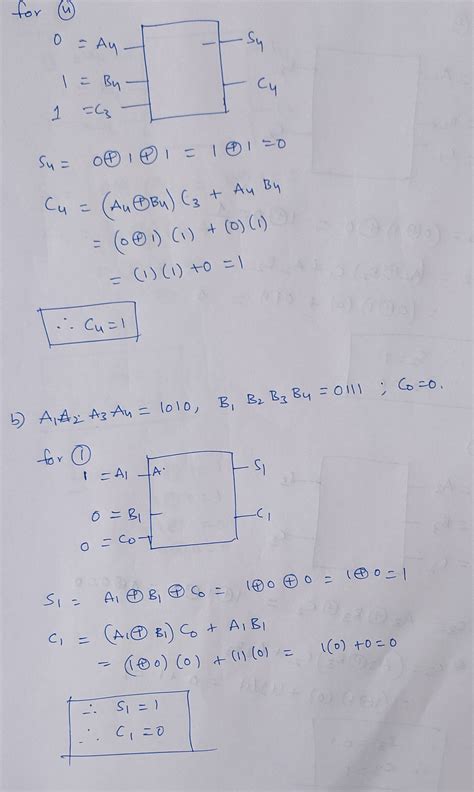 for ④
0 = A4 — S4
1 = B4 — C4
1 = C3
S4 = 0⊕1⊕1 = 1⊕1 = 0
C4 = (A4⊕B4) C3 + A4 B4
= (0⊕1) (1) + (0) (1)
= (1) (1) + 0 = 1
∴ C4 = 1
b) A1 A2 A3 A4 = 1010, B1 B2 B3 B4 = 0111 ; C0 = 0.
for ①
1 = A1 — A — S1
0 = B1 — C1
0 = C0
S1 = A1 ⊕ B1 ⊕ C0 = 1⊕0⊕0 = 1⊕0 = 1
C1 = (A1⊕B1) C0 + A1B1
= (1⊕0) (0) + (1) (0) = 1(0) + 0 = 0
∴ S1 = 1
∴ C1 = 0